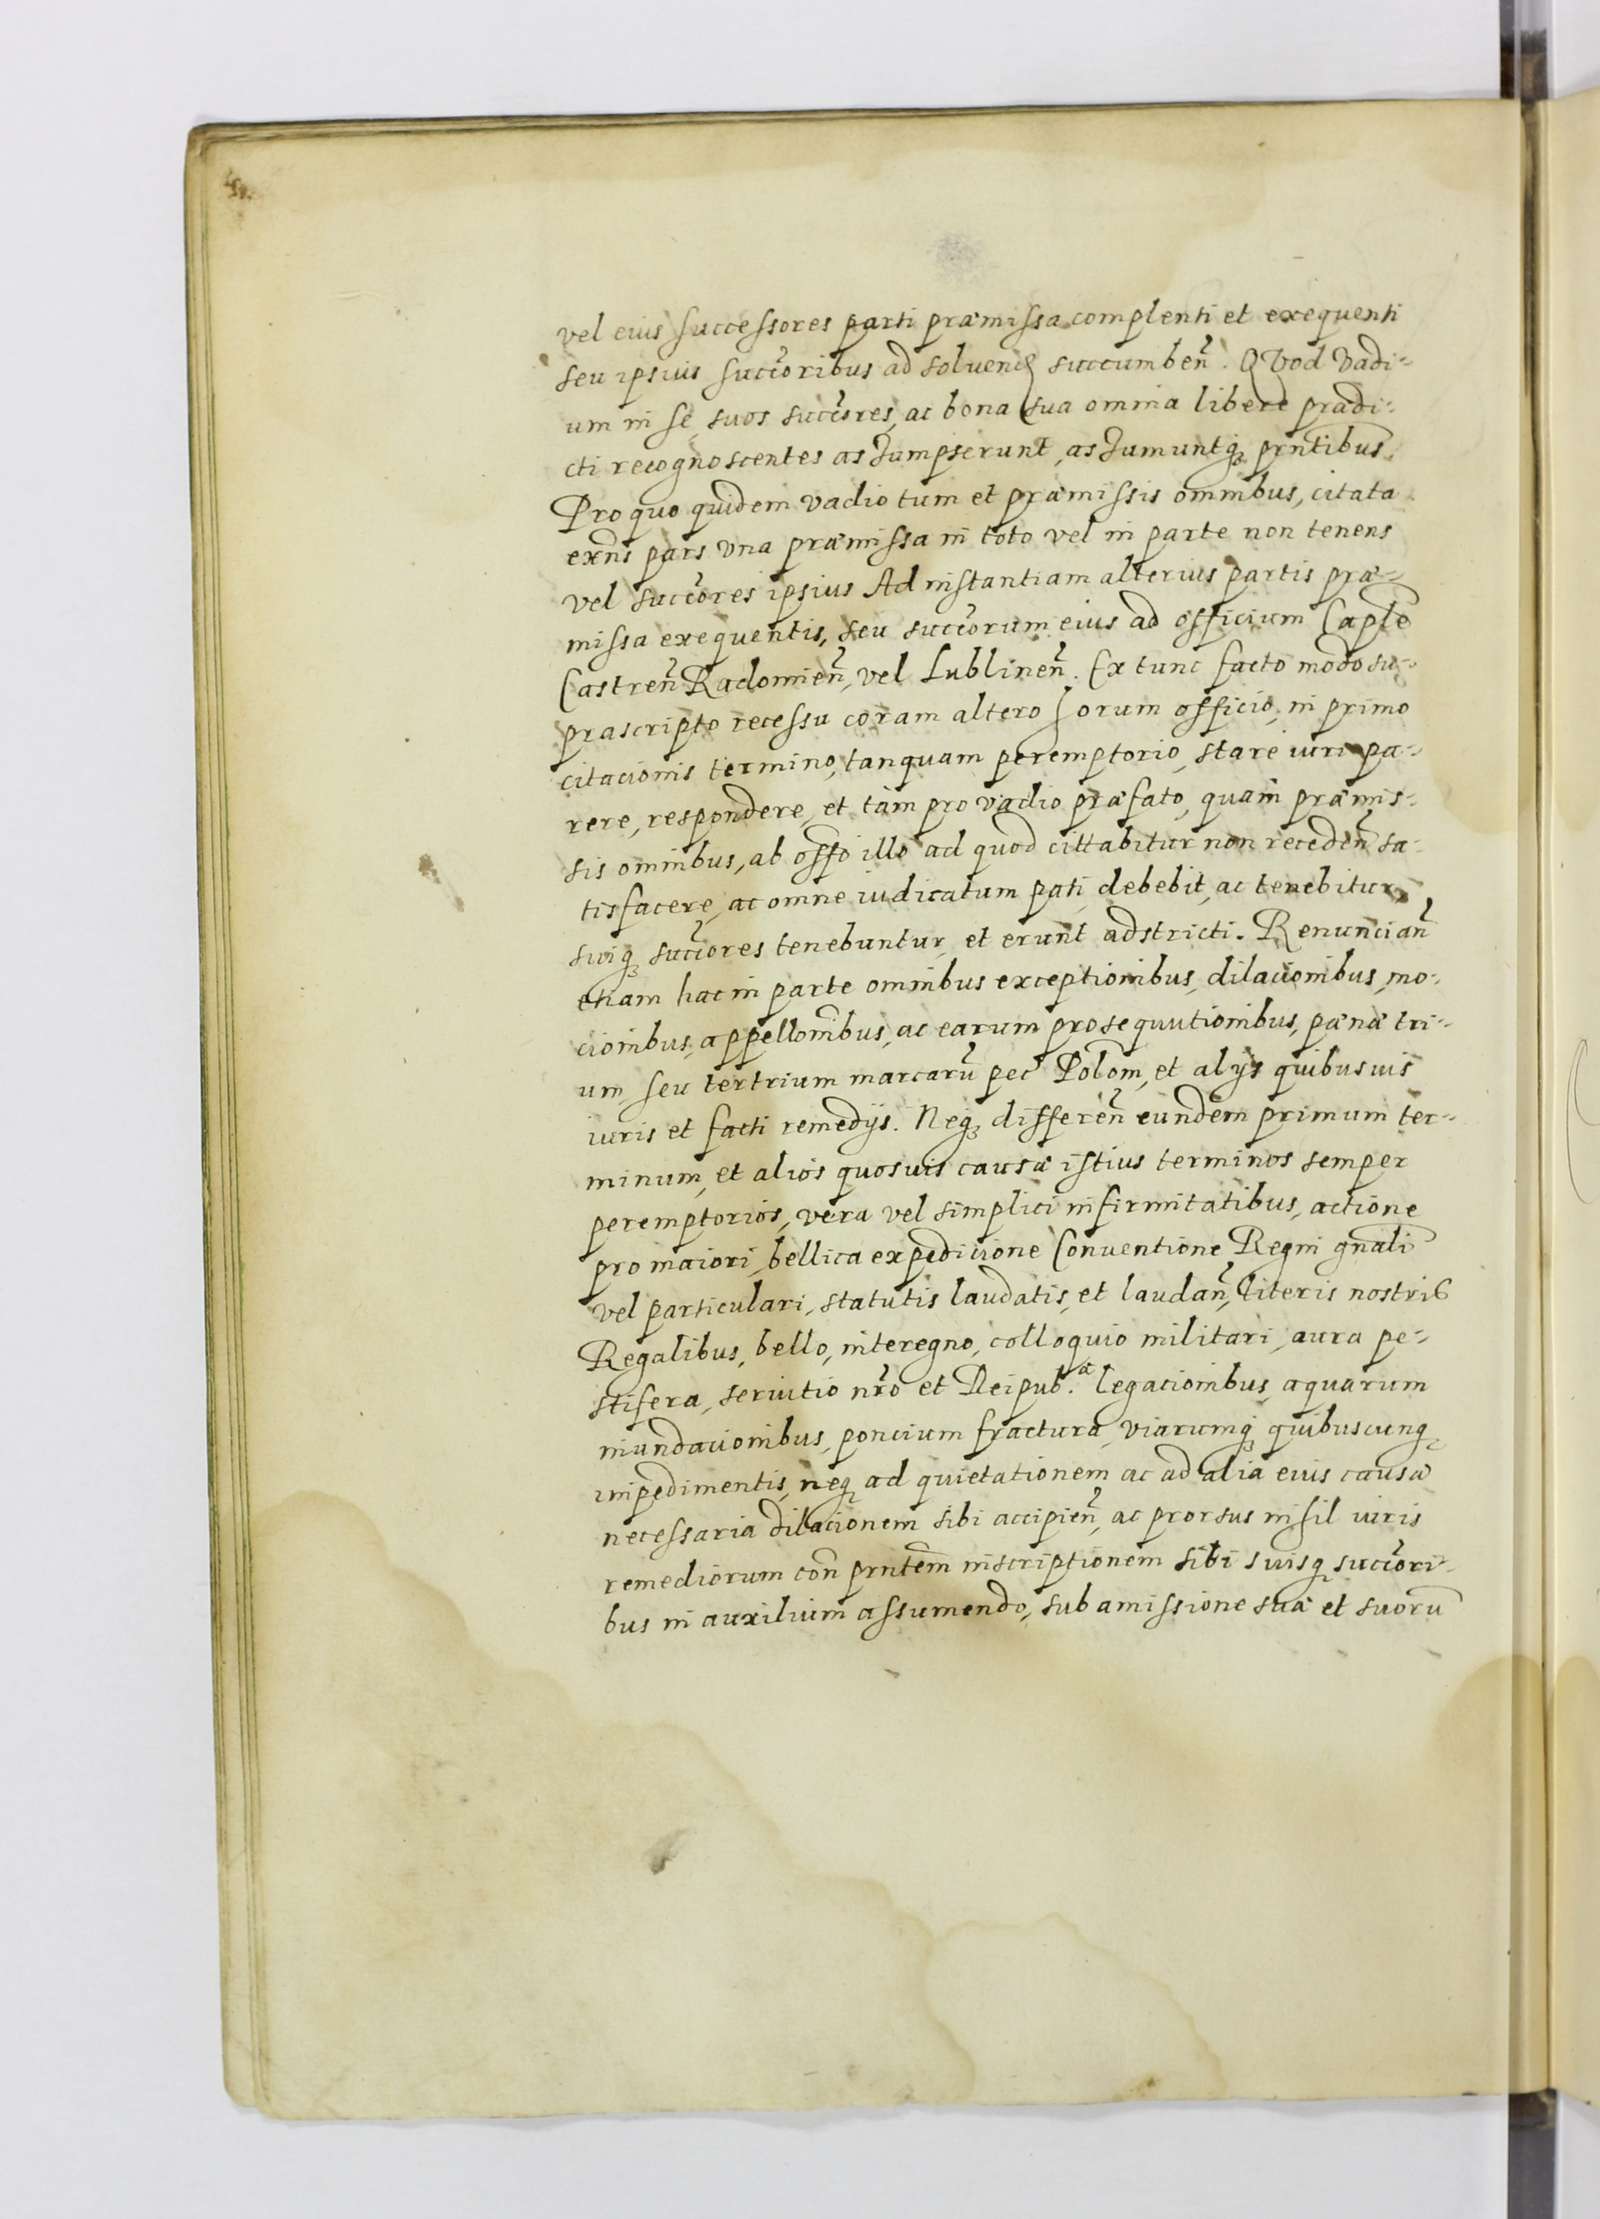 vel eius successores parti præmissa complenti et exequenti
seu ipsius succ̃oribus ad soluend succumbeñ. Quod Vadi-
um in se, suos succ̃ores, ac bona sua omnia libere prædi-
cti recognoscentes assumpserunt, assumuntq₃ prñtibus.
Pro quo quidem vadio tum et præmissis omnibus, citata
exñs pars vna præmissa in toto vel in parte non tenens
vel succ̃ores ipsius Ad instantiam alterius partis præ-
missa exequentis, seu succ̃orum eius ad officium Caple
Castreñ Radomieñ, vel Lublineñ. Ex tunc facto modo su-
prascripto recessu coram altero horum officio, in primo
citacionis termino, tanquam peremptorio, stare iuri pa-
rere, respondere, et tàm pro vadio præfato, quàm præmis-
sis omnibus, ab offo illo ad quod cittabitur non recedeñ sa-
tisfacere, ac omne iudicatum pati, debebit, ac tenebitur,
suiq₃ succ̃ores tenebuntur, et erunt adstricti. Renunciañ
etiam hac in parte omnibus exceptionibus, dilacionibus, mo-
cionibus, appellom̃bus, ac earum prosequutionibus, pænæ tri-
um, seu tertrium marcarũ pec Polom, et alijs quibusuis
iuris et facti remedijs. Neq₃ differeñ eundem primum ter-
minum, et aliòs quosuis causæ istius terminos semper
peremptorios, vera vel simplici infirmitatibus, actione
pro maiori, bellica expedicione Conuentione Regni gnãli
vel particulari, statutis laudatis, et laudañ, literis nostris
Regalibus, bello, interegno, colloquio militari, aura pe-
stifera, seruitio nr̃o et Reipub.æ legacionibus, aquarum
inundacionibus, poncium fractura, viarumq₃ quibuscunq₃
impedimentis, neq₃ ad quietationem ac ad alia eius causæ
necessaria dilacionem sibi accipieñ, ac prorsus nihil iuris
remediorum coñ prñtem inscriptionem sibi suisq₃ succ̃ori-
bus in auxilium assumendo, sub amissione suæ et suorũ